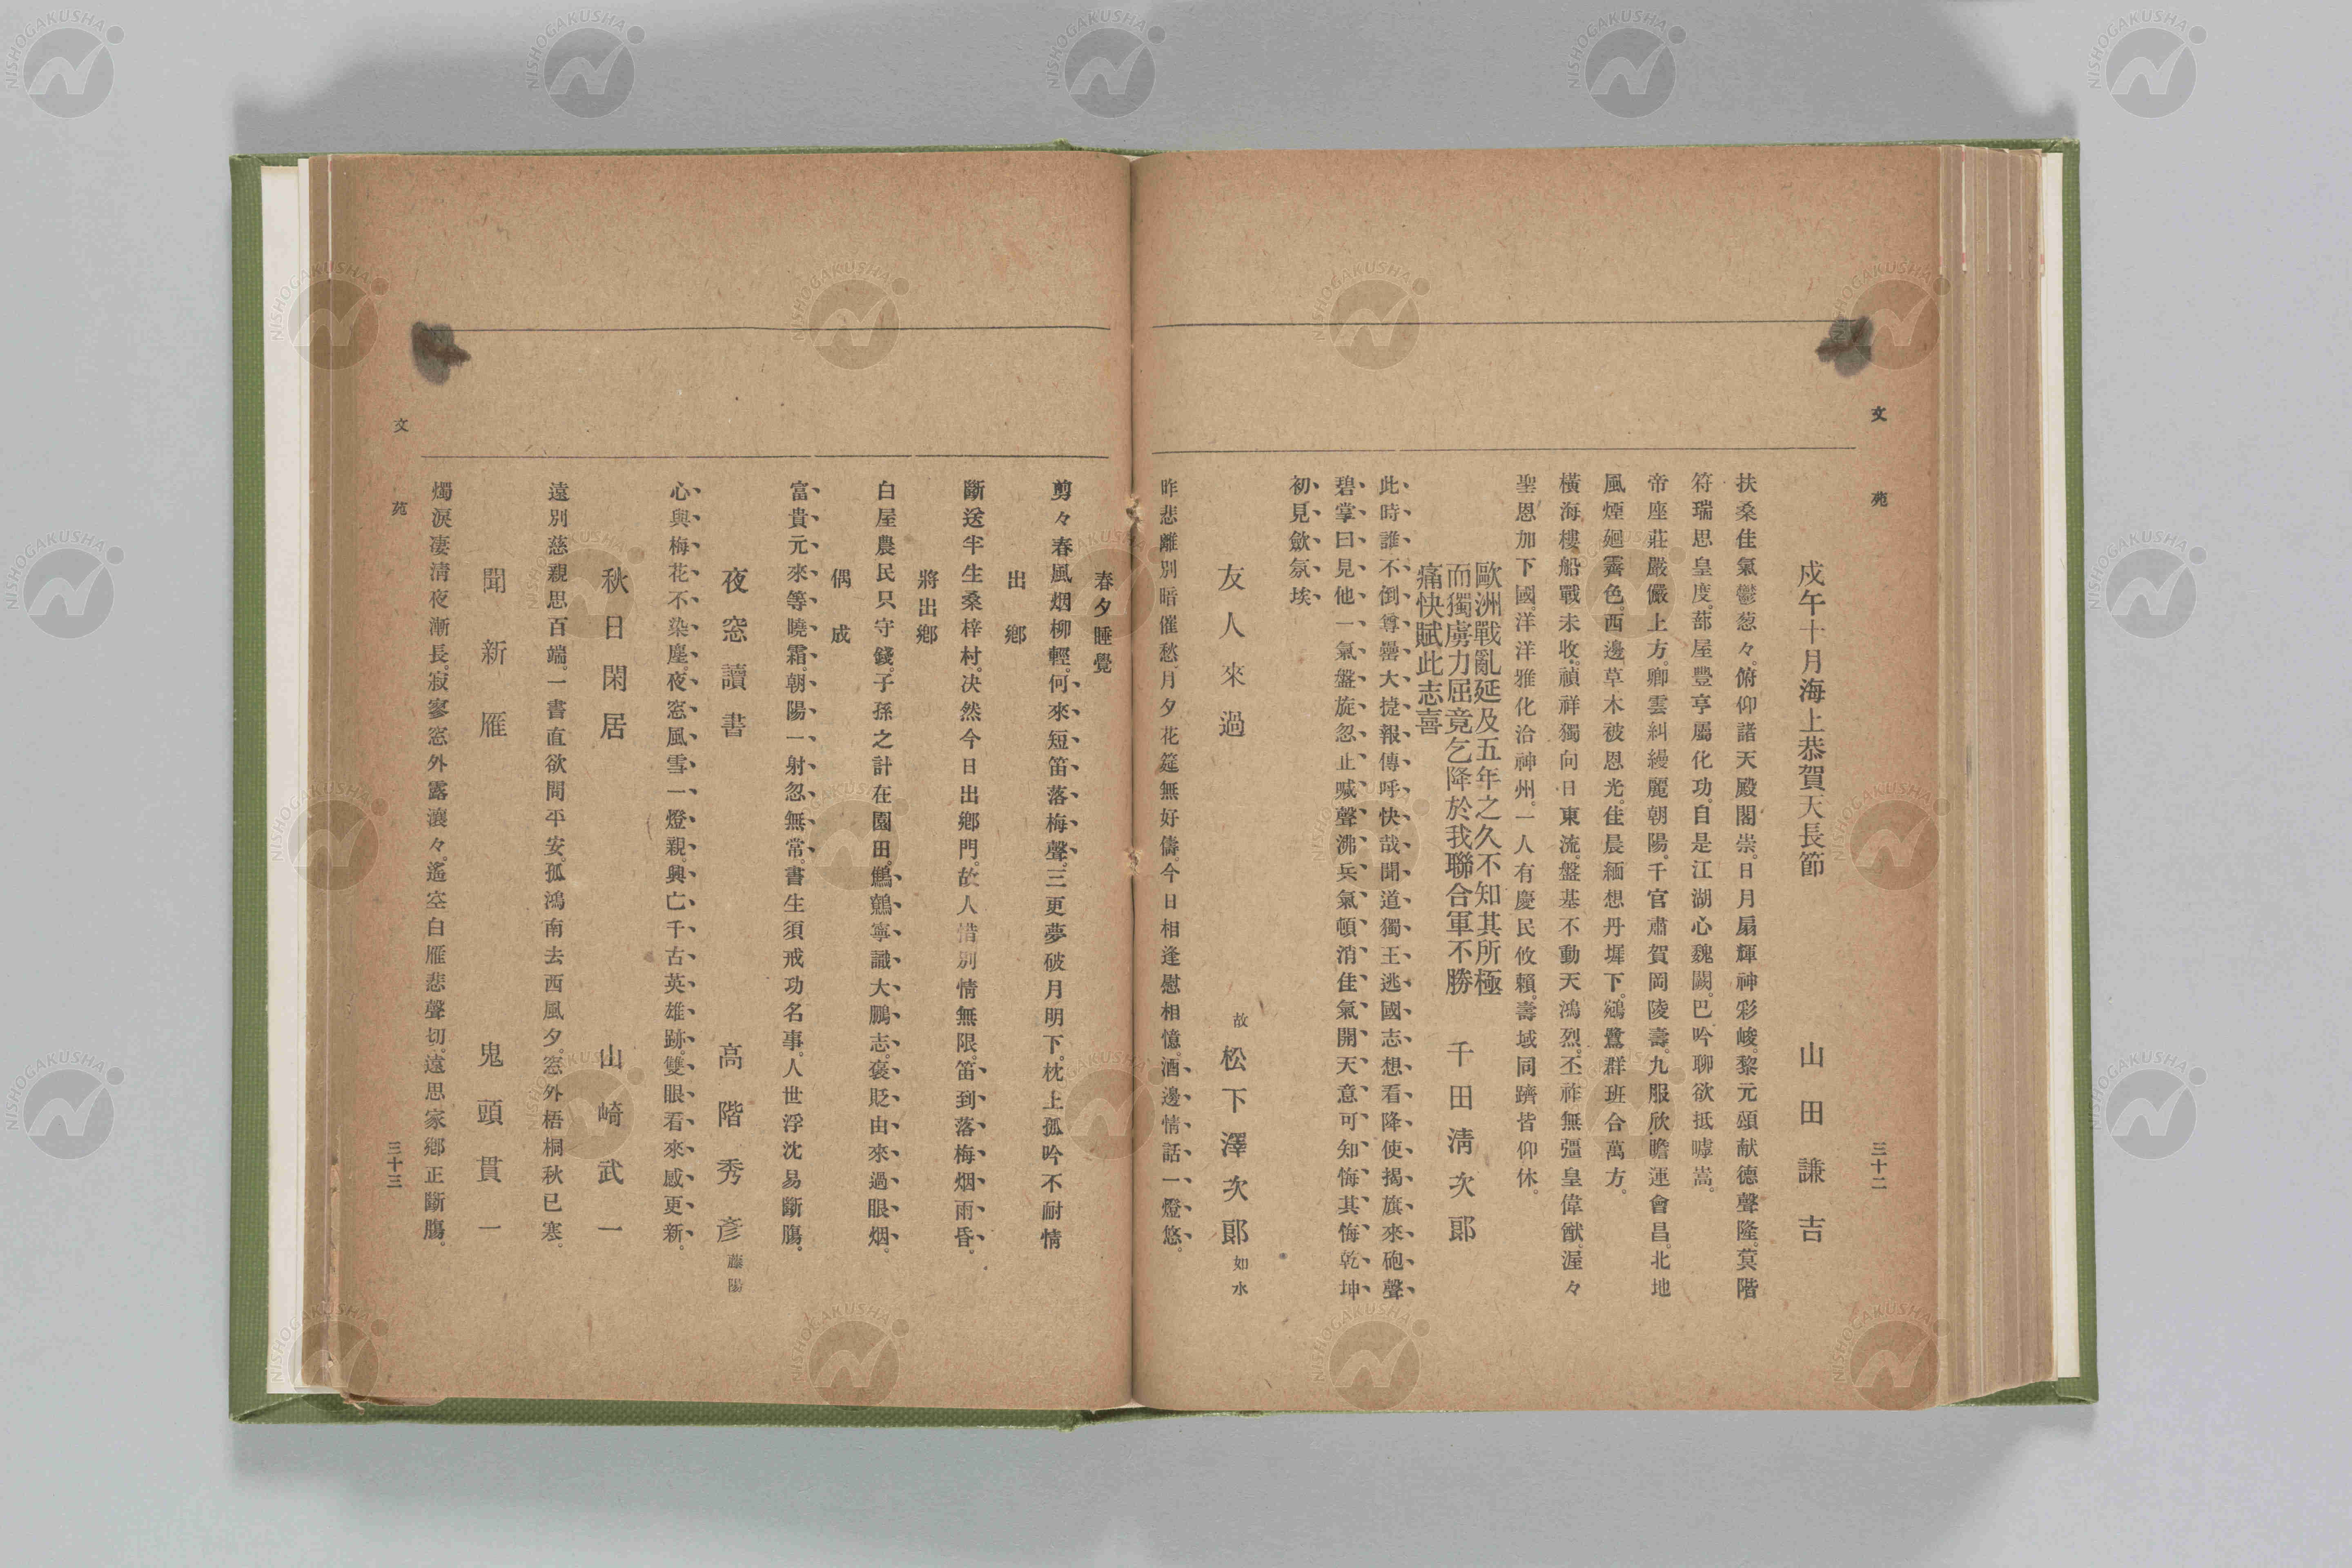 文苑
三十二
戍午十月海上恭賀天長節 山田謙吉
扶桑佳氣鬱葱々。俯仰諸天殿閣崇。日月扇輝神彩峻。黎元頌献德聲隆。蓂階
符瑞思皇度。蔀屋豐亨屬化功。自是江湖心魏闕。巴吟聊欲抵嘑嵩。
帝座莊嚴儼上方。卿雲糾縵麗朝陽。千官肅賀岡陵壽。九服欣瞻運會昌。北地
風煙廻霽色。西邊草木被恩光。佳晨緬想丹墀下。鵷鷺群班合萬方。
橫海樓船戰未收。禎祥獨向日東流。盤基不動天鴻烈。丕祚無彊皇偉猷。渥々
聖恩加下國。洋洋雅化洽神州。一人有慶民攸賴。壽域同躋皆仰休。
歐洲戰亂延及五年之久不知其所極
而獨虜力屈竟乞降於我聯合軍不勝 千田淸次郞
痛快賦此志喜
此時誰不倒尊罍大捷報傳呼快哉聞道獨王逃國志想看降使揭旗來砲聲
碧掌曰見他一氣盤旋忽止喊聲沸兵氣頓消佳氣開天意可知悔其悔乾坤
初見斂氛埃
友人來過 故松下澤次郞 如水
昨悲離別暗催愁。月夕花筵無好儔。今日相逢慰相憶。酒邊情話一燈悠。
春夕睡覺
剪々春風烟柳輕。何來短笛落梅聲。三更夢破月明下。枕上孤吟不耐情
出鄕
斷送半生桑梓村。決然今日出鄕門。故人惜別情無限。笛到落梅烟雨昏。
將出鄕
白屋農民只守錢。子孫之計在園田。鷦鷯寧識大鵬志。褒貶由來過眼烟。
偶成
富貴元來等曉霜。朝陽一射忽無常。書生須戒功名事。人世浮沈易斷膓。
夜窓讀書 高階秀彥 藤陽
心與梅花不染塵。夜窓風雪一燈親。興亡千古英雄跡。雙眼看來感更新。
秋日閑居 山崎武一
遠別慈親思百端。一書直欲問平安。孤鴻南去西風夕。窓外梧桐秋已寒。
聞新雁 鬼頭貫一
燭淚凄淸夜漸長。寂寥窓外露瀼々。遙空白雁悲聲切。遠思家鄕正斷膓。
文苑
三十三